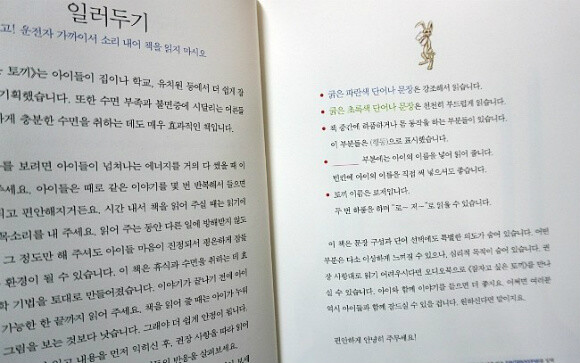 일러두기
고! 운전자 가까이서 소리 내어 책을 읽지 마시오
토끼》는 아이들이 집이나 학교, 유치원 등에서 더 쉽게 잠
기획했습니다. 또한 수면 부족과 불면증에 시달리는 어른들
하게 충분한 수면을 취하는 데도 매우 효과적인 책입니다.
를 보려면 아이들이 넘쳐나는 에너지를 거의 다 썼을 때 이
주세요. 아이들은 때로 같은 이야기를 몇 번 반복해서 들으면
되고 편안해지거든요. 시간 내서 책을 읽어 주실 때는 읽기에
목소리를 내 주세요. 읽어 주는 동안 다른 일에 방해받지 않도
그 정도만 해 주셔도 아이들 마음이 진정되서 평온하게 잠들
환경이 될 수 있습니다. 이 책은 휴식과 수면을 취하는 데 효
학 기법을 토대로 만들어졌습니다. 이야기가 끝나기 전에 아이
가능한 한 끝까지 읽어 주세요. 책을 읽어 줄 때는 아이가 누워
그림을 보는 것보다 낫습니다. 그래야 더 쉽게 안정이 됩니다.
읽고 내용을 먼저 익히신 후, 권장 사항을 따라 읽어
들의 반응을 살펴보세요.
● 굵은 파란색 단어나 문장은 강조해서 읽습니다.
● 굵은 초록색 단어나 문장은 천천히 부드럽게 읽습니다.
● 책 중간에 하품하거나 등 동작을 하는 부분들이 있습니다.
이 부분들은 (행동)으로 표시했습니다.
● ______ 부분에는 아이의 이름을 넣어 읽어 줍니다.
빈칸에 아이의 이름을 직접 써 넣으셔도 좋습니다.
● 토끼 이름은 로저입니다.
두 번 하품을 하며 "로~ 저~"로 읽을 수 있습니다.
이 책은 문장 구성과 단어 선택에도 특별한 의도가 숨어 있습니다. 어떤
부분은 다소 이상하게 느껴질 수 있으나, 심리적 목적이 숨어 있습니다. 권
장 사항대로 읽기 어려우시다면 오디오북으로 《잠자고 싶은 토끼》를 만나
실 수 있습니다. 아이와 함께 이야기를 들으면 더 좋지요. 어쩌면 여러분
역시 아이들과 함께 잠드실 수 있을 겁니다. 원하신다면 말이지요.
편안하게 안녕히 주무세요!